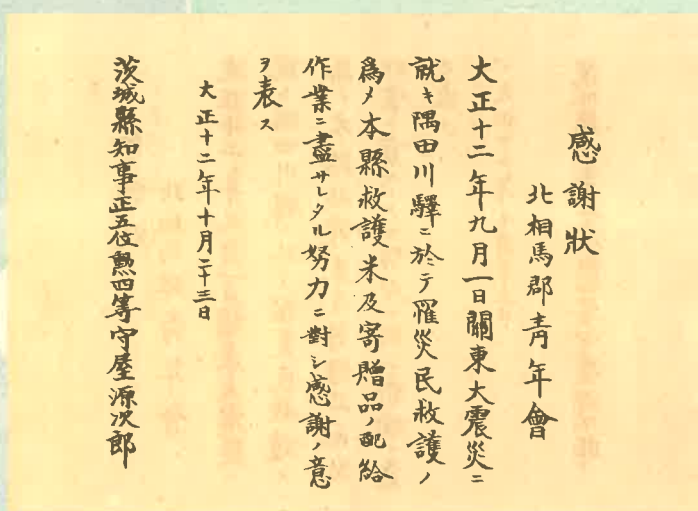 感謝狀
北相馬郡青年會
大正十二年九月一日關東大震災ニ
就キ隅田川驛ニ於テ罹災民救護ノ
爲メ本縣救護米及寄贈品ノ配給
作業ニ盡サレタル努力ニ對シ感謝ノ意
ヲ表ス
大正十二年十月二十三日
茨城縣知事正五位勲四等守屋源次郎